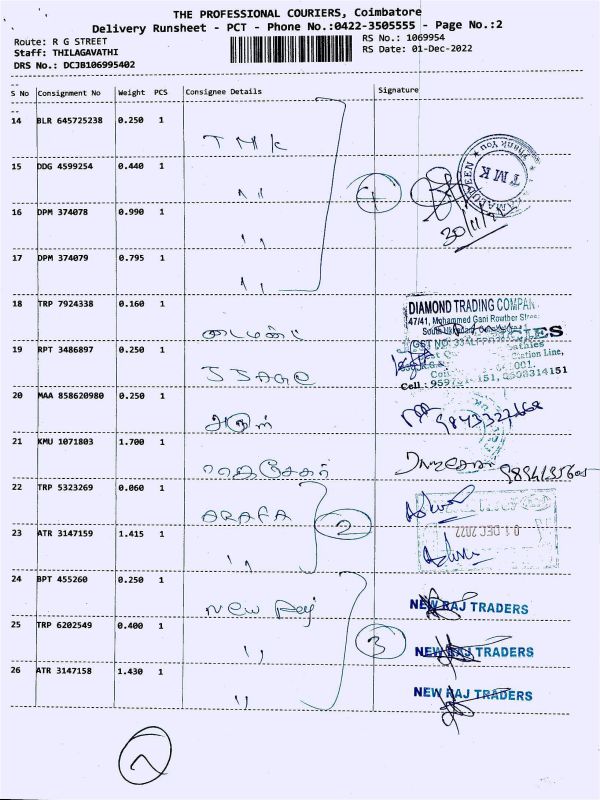 THE PROFESSIONAL COURIERS, Coimbatore
Delivery Runsheet - PCT - Phone No.:0422-3505555 - Page No.:2
Route: R G STREET
RS No.: 1069954
Staff: THILAGAVATHI
RS Date: 01-Dec-2022
DRS No.: DCJB106995402
S No Consignment No Weight PCS Consignee Details Signature
14 BLR 645725238 0.250 1 TMK
15 DDG 4599254 0.440 1 ,,
16 DPM 374078 0.990 1 ,,
17 DPM 374079 0.795 1 ,,
Thank You
TMK
30/11/
18 TRP 7924338 0.160 1
DIAMOND TRADING COMPAN
47/41, Mohammed Gani Rowther Stree
19 RPT 3486897 0.250 1
Cell :
20 MAA 858620980 0.250 1 அருள்
9843327668
21 KMU 1071803 1.700 1
22 TRP 5323269 0.060 1 ARAFA
2
01 DEC 2022
23 ATR 3147159 1.415 1 ,,
24 BPT 455260 0.250 1 New Raj
NEW RAJ TRADERS
25 TRP 6202549 0.400 1 ,,
3
NEW RAJ TRADERS
26 ATR 3147158 1.430 1 ,,
NEW RAJ TRADERS
2